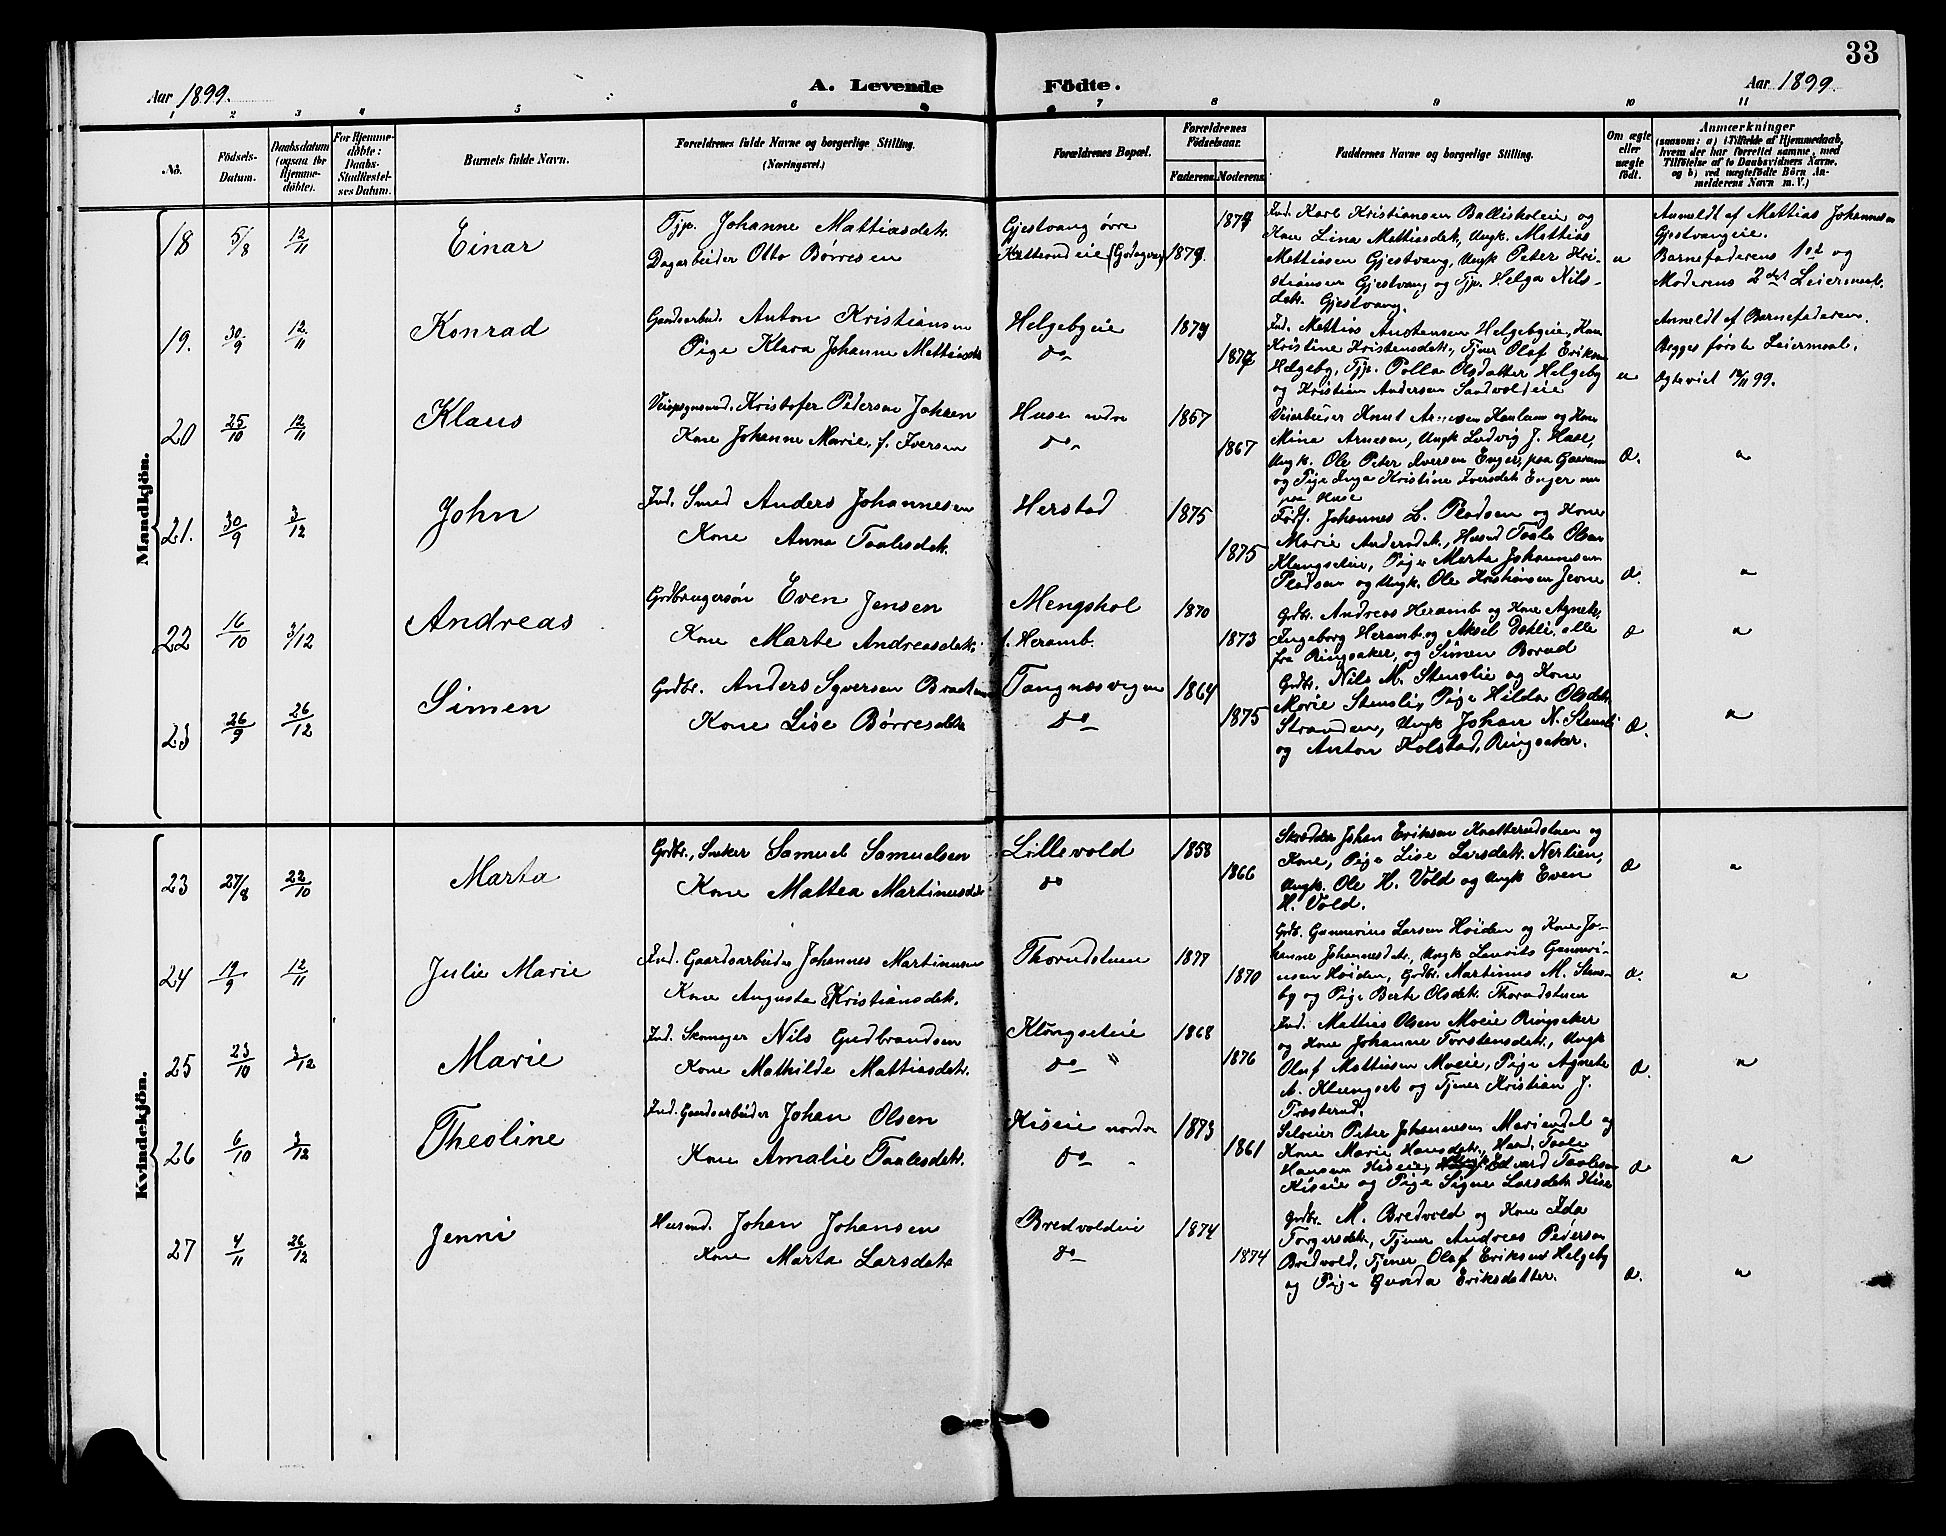 33
Aar 1899.
A. Levende Födte.
Aar 1899
1 2 3 4 5 6 7 8 9 10 11
No.
Födsels-Datum.
Daabsdatum (ogsaa for Hjemmedöbte).
For Hjemmedöbte: Daabs-Stadfæstelses Datum.
Barnets fulde Navn.
Forældrenes fulde Navne og borgerlige Stilling. (Næringsvei.)
Forældrenes Bopæl.
Forældrenes Födselsaar.
Faderens. Moderens.
Faddernes Navne og borgerlige Stilling.
Om ægte eller uægte födt.
Anmærkninger
(saasom: a) i Tilfælde af Hjemmedaab, hvem der har forrettet samme, med Tilföielse af to Daabsvidners Navne, og b) ved uægtefödte Börn Anmelderens Navn m. V.)
Mandkjön.
18 5/8 12/11 Einar
Tjp. Johanne Mattiasdtr.
Dagarbeider Otto Børresen
Gjestvang øvre
1879
Ind. Karl Kristiansen Balliskoleie og
Kone Lina Mattiasdtr, Ungk. Mattias
Mattiasen Gjestvang, Ungk Peter Kri-
stiansen Gjestvang og Tjp. Helga Nils-
dtr. Gjestvang.
u
Anmeldt af Mattias Johannesen
Gjestvangeie.
Barnefaderens 1ste og
Moderens 2det Leiermaal.
19. 30/9 12/11 Konrad
Gaardsarbeid. Anton Kristiansen
Pige Klara Johanne Mattiasdtr
Helgebyeie
do
Ind. Mattias Austensen Helgebyeie, Kone
Kristine Kristensdtr., Tjener Olaf Eriksen
Helgeby, Tjp. Polla Olsdatter Helgeby
og Kristian Andersen Sandvoldeie
u
Anmeldt af Barnefaderen.
Begges første Leiermaal.
Ægteviet 12/11 99.
20 25/10 12/11 Klaus
Kristofer Pedersen Johsen
Kone Johanne Marie, f. Iversen
Huse nedre
do
1867
1867
Veiarbeider Knut Arnesen Kaulum og Kone
Mina Arnesen, Ungk Ludvig J. Huse,
Ungk. Ole Peter Iversen Enger, paa
og Pige Inga Kristine Iversdtr Enger
paa Huse
Æ.
"
21. 30/9 3/12 John
Ind. Smed Anders Johannesen
Kone Anna Taalesdtr.
Herstad
1875
1875
Fødf. Johannes L. Pladsen og Kone
Marie Andersdtr., Husmd Taale Olsen
Klungseteie, Pige Marta Johannesen
Pladsen og Ungk. Ole Kristiansen Jevne
Æ.
"
22 16/10 3/12 Andreas
Grdbrugersøn Even Jensen
Kone Marte Andreasdtr.
Mengshol
f. Heramb.
1870
1873
Grdbr. Andreas Heramb og Kone Agnete,
Ingeborg Heramb og Aksel Dæhli, alle
fra Ringsaker, og Simen Borud
Æ
"
23 26/9 26/12 Simen
Grdbr. Anders Syversen
Kone Lise Børresdtr
Tangnæsvigen
do
1864
1875
Grdbr. Nils M. Stenslie og Kone
Marie Stensli, Pige Hilda Olsdtr.
Stranden, Ungk Johan N. Stensli
og Anton Kolstad, Ringsaker.
Æ.
"
Kvindekjön.
23 27/8 22/10 Marta
Grdbr., Snekker Samuel Samuelsen
Kone Mattea Martinusdtr
Lillevold
do
1858
1866
Skrædder Johan Eriksen Knatterudstuen og
Kone, Pige Lise Larsdtr. Nerlien,
Ungk. Ole H. Vold og Ungk Even
H. Vold.
Æ
"
24 19/9 12/11 Julie Marie
Ind. Gaardsarbeider Johannes Martinusen
Kone Augusta Kristiansdtr.
Thorudstuen
1877
1870
Grdb. Gunnerius Larsen Høiden og Kone Jo-
hanne Johannesdtr, Ungk Laurits Gunneri-
usen Høiden, Grdbr. Martinus M. Stens-
by og Pige Berte Olsdtr. Thorudstuen
Æ.
"
25 23/10 3/12 Marie
Ind. Skomager Nils Gudbrandsen
Kone Mathilde Mattiasdtr.
Klungseteie
do "
1868
1876
Ind. Mattias Olsen Moeie Ringsaker
og Kone Johanne Torstensdtr., Ungk
Oluf Mattiasen Moeie, Pige Agnete
A. Klungset og Tjener Kristian J.
Træsterud.
Æ.
"
26 6/10 3/12 Theoline
Ind. Gaardsarbeider Johan Olsen
Kone Amalie Taalesdtr.
Kiseie nordre
do
1873
1861
Selveier Peter Johannesen Mariendal og
Kone Marie Hansdtr., Husmd. Taale
Hansen Kiseie, Ungk Edvard Taalesen
Kiseie og Pige Signe Larsdtr Kise
Æ
"
27 4/11 26/12 Jenni
Husmd. Johan Johansen
Kone Marta Larsdtr
Bredvoldeie
do
1874
1874
Grdbr. M. Bredvold og Kone Ida
Torgersdtr., Tjener Andreas Pedersen
Bredvold, Tjener Olaf Eriksen Helgeby
og Pige Gunda Eriksdatter.
Æ.
"